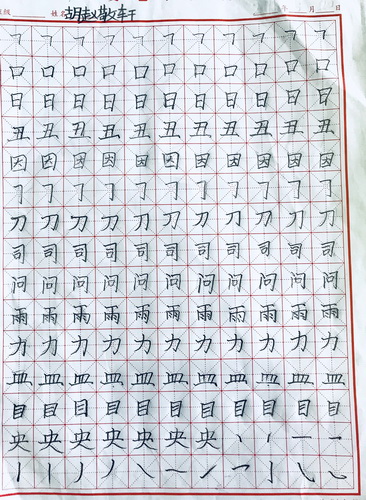 班级 姓名 胡赵敬轩 年 月 日
㇕ ㇕ ㇕ ㇕ ㇕ ㇕ ㇕ ㇕ ㇕ ㇕ ㇕
口 口 口 口 口 口 口 口 口 口 口
日 日 日 日 日 日 日 日 日 日 日
丑 丑 丑 丑 丑 丑 丑 丑 丑 丑 丑
因 因 因 因 因 因 因 因 因 因 因
㇆ ㇆ ㇆ ㇆ ㇆ ㇆ ㇆ ㇆ ㇆ ㇆ ㇆
刀 刀 刀 刀 刀 刀 刀 刀 刀 刀 刀
司 司 司 司 司 司 司 司 司 司 司
问 问 问 问 问 问 问 问 问 问 问
雨 雨 雨 雨 雨 雨 雨 雨 雨 雨 雨
力 力 力 力 力 力 力 力 力 力 力
皿 皿 皿 皿 皿 皿 皿 皿 皿 皿 皿
目 目 目 目 目 目 目 目 目 目 目
央 央 央 央 央 央 央 丶 丶 一 一
丨 丨 丿 ㇏ ㇀ ㇀ ㇖ 亅 ㇂ ㇃